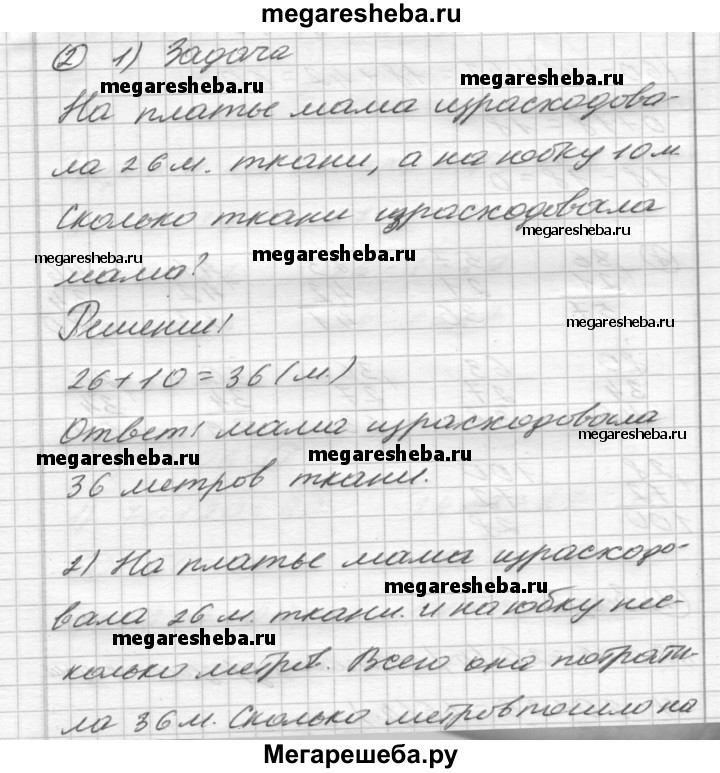 megaresheba.ru
② 1) Задача
megaresheba.ru
megaresheba.ru
На платье мама израсходова-
ла 26 м. ткани, а на юбку 10 м.
Сколько ткани израсходовала
megaresheba.ru
megaresheba.ru
megaresheba.ru
мама?
Решение:
megaresheba.ru
26+10=36 (м.)
Ответ: мама израсходовала
megaresheba.ru
megaresheba.ru
megaresheba.ru
36 метров ткани.
2) На платье мама израсходо-
megaresheba.ru
вала 26 м. ткани. и на юбку нес-
megaresheba.ru
колько метров. Всего она потрати-
ла 36 м. Сколько метров пошло на
Мегарешеба.ру